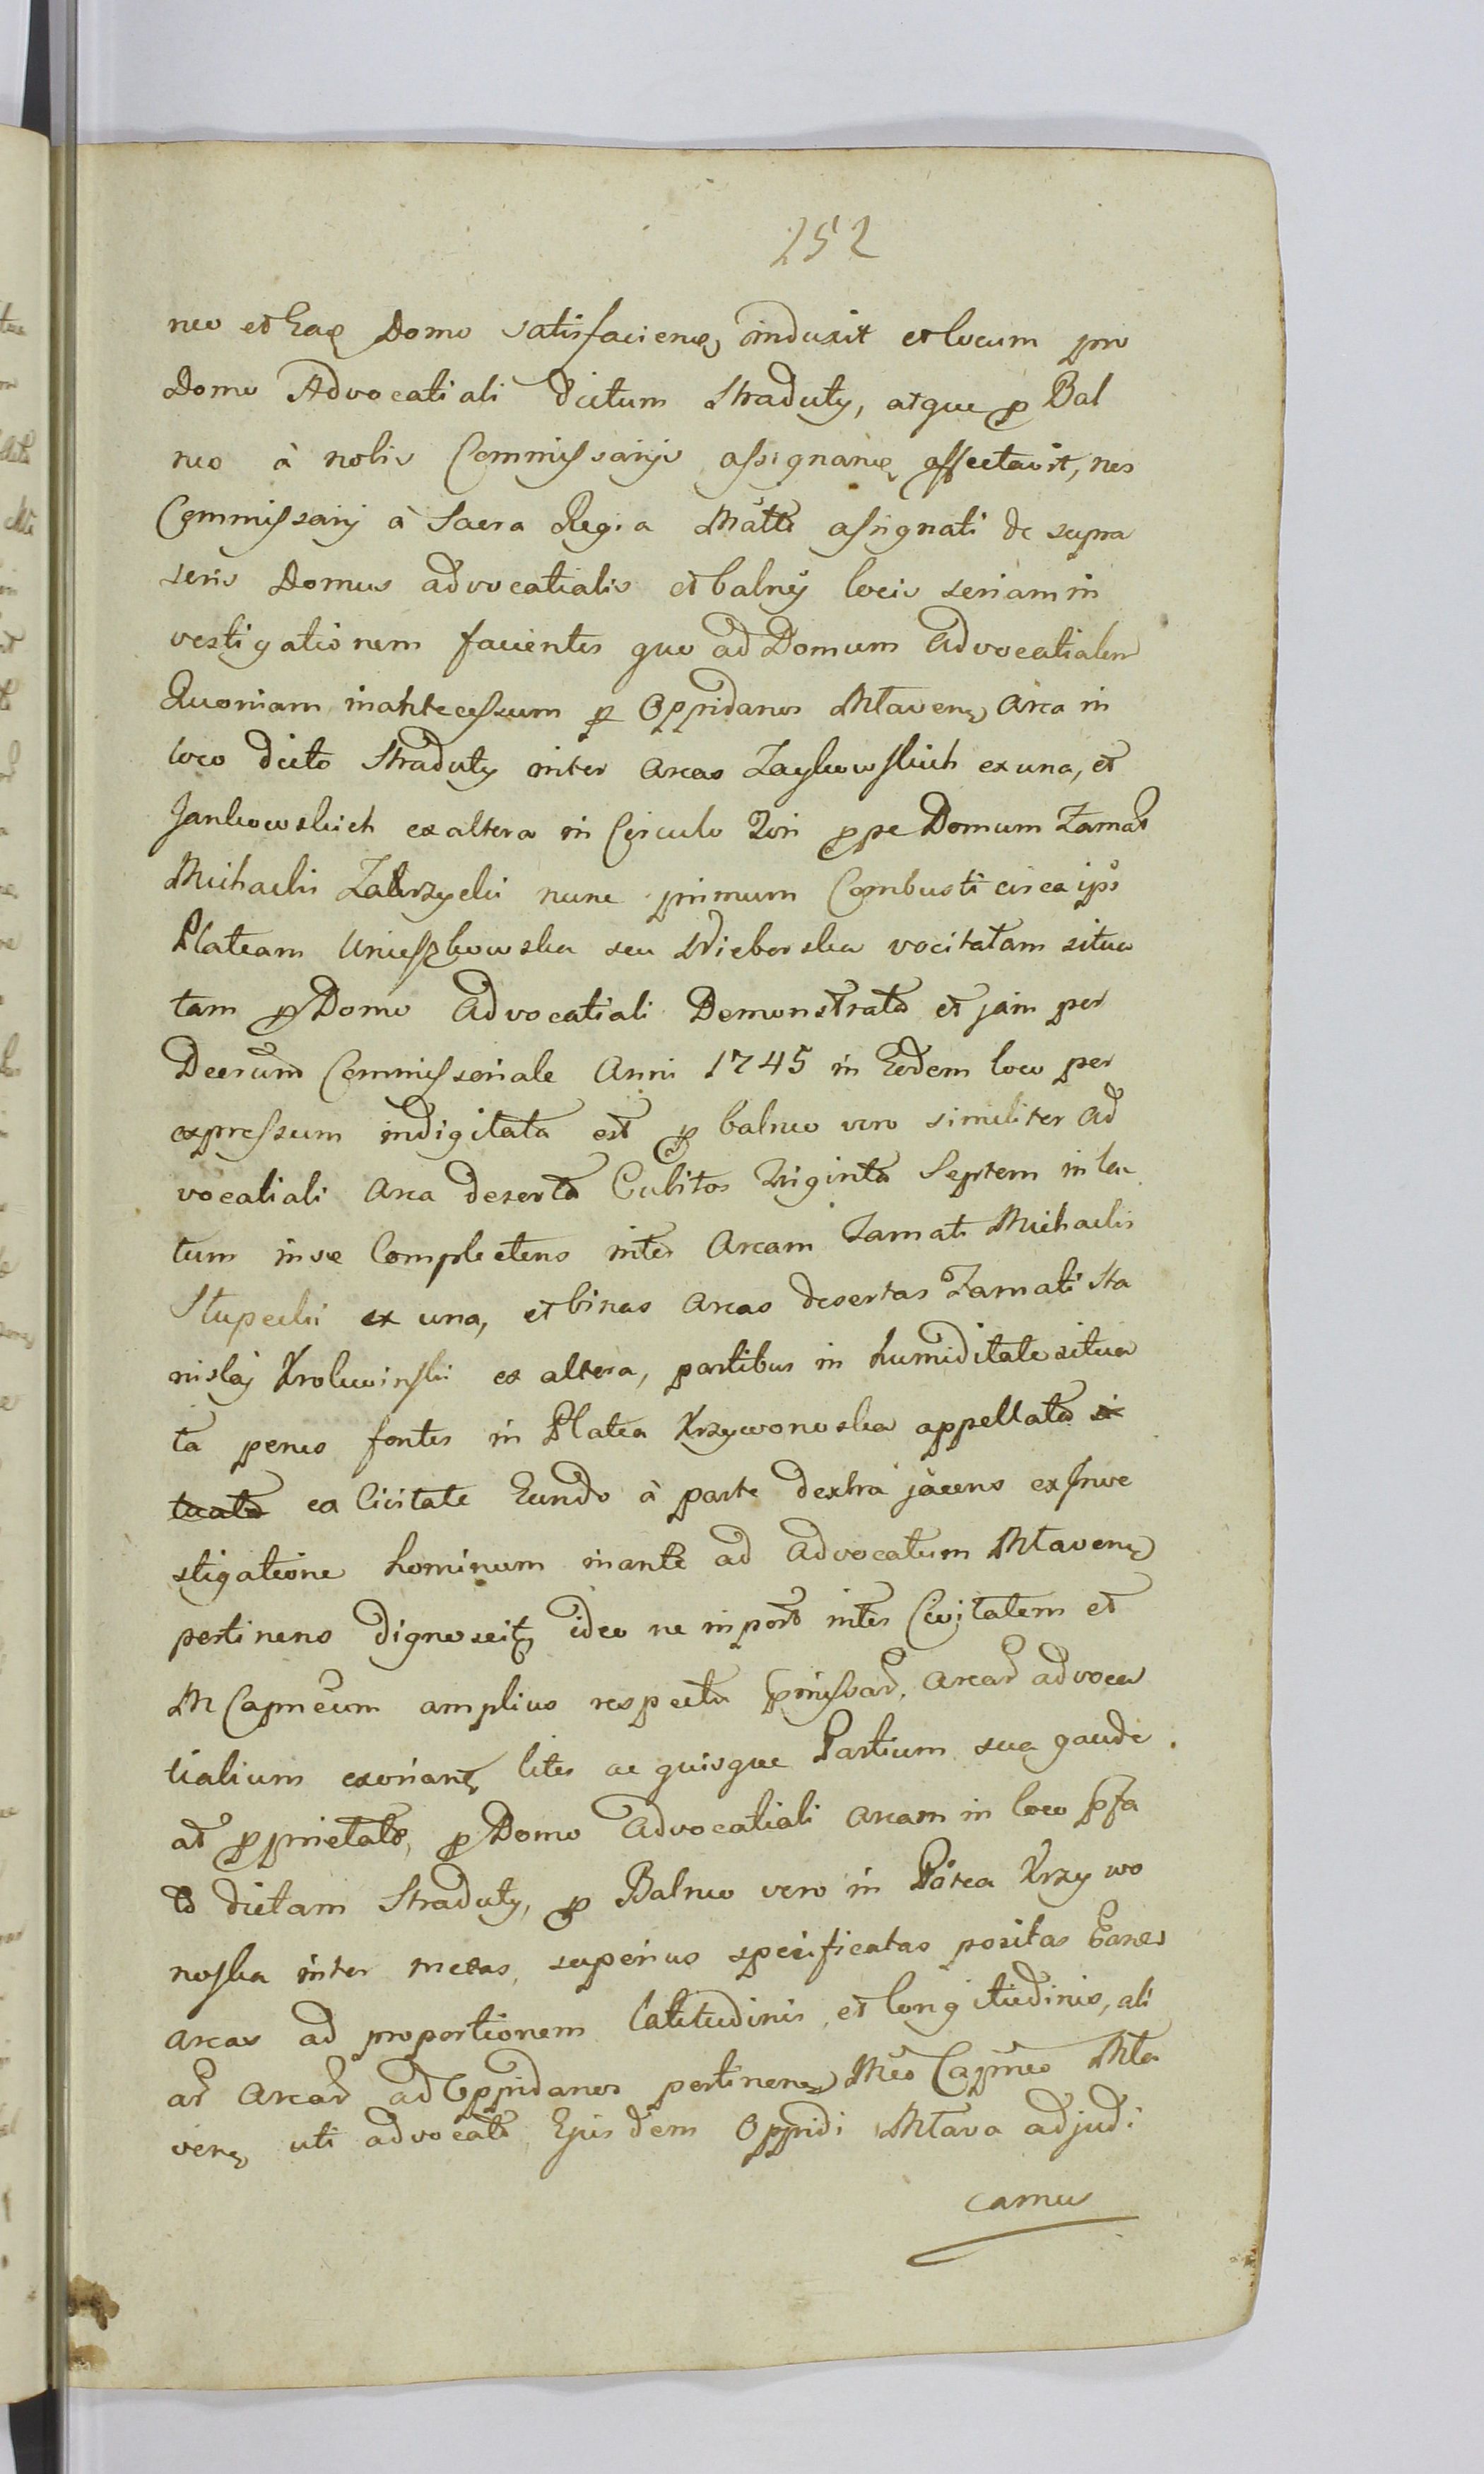 252
neo et Domo satisfacien induxit et locum pro
Domo Advocatiali dictum Straduty, atque p Bal
neo à nobis Commissarijs assignari affectavit, nos
Commissarij à Sacra Regia Mtte assignati de supra
seris Domus advocatialis et balnej locis seriam in
vestigationem facientes quo ad Domum Advocatialem
Quoniam inantecessum p Oppidanos Mlaven Area in
loco dicto Straduty inter Areas Zaykowskich ex una, et
Jankowskich ex altera in Circulo Fori ppe Domum Famat
Michaelis nunc primum Combusti circa ips
Plateam seu vocitatam situa
tam p Domo Advocatiali Demonstrata et jam per
Decrum Commissoriale Anni 1745 in Eodem loco per
expressum indigitata est p balneo vero similiter Ad
vocatiali Area deserta Cubitos Triginta Septem in la
tum in se Complectens inter Aream Famati Michaelis
Slupecki ex una, et binas Areas desertas Famati Sta
nislaj Krolewinski ex altera, partibus in humiditate situa
ta penes fontes in Platea Krzywonoska appellata si
tuata ex Civitate Eundo à parte dextra jacens ex Inve
stigatione hominum inante ad Advocatum Mlaven
pertinens dignoscit, ideo ne inpost inter Civitatem et
M Capneum amplius respectu pmissar. Arear advoca
tialium exoriant lites ac quisque Partium sua gaude
at pprietate, p Domo Advocatiali Aream in loco pfa
to dictam Straduty, p Balneo vero in Platea Krzywo
noska inter metas superius specificatas positas Easdes
Areas ad proportionem latitudinis et longitudinis, ali
ar Arear ad Oppidanos pertinen Mco Capneo Mla
ven uti advocato Ejusdem Oppidi Mlava adjudi
camu